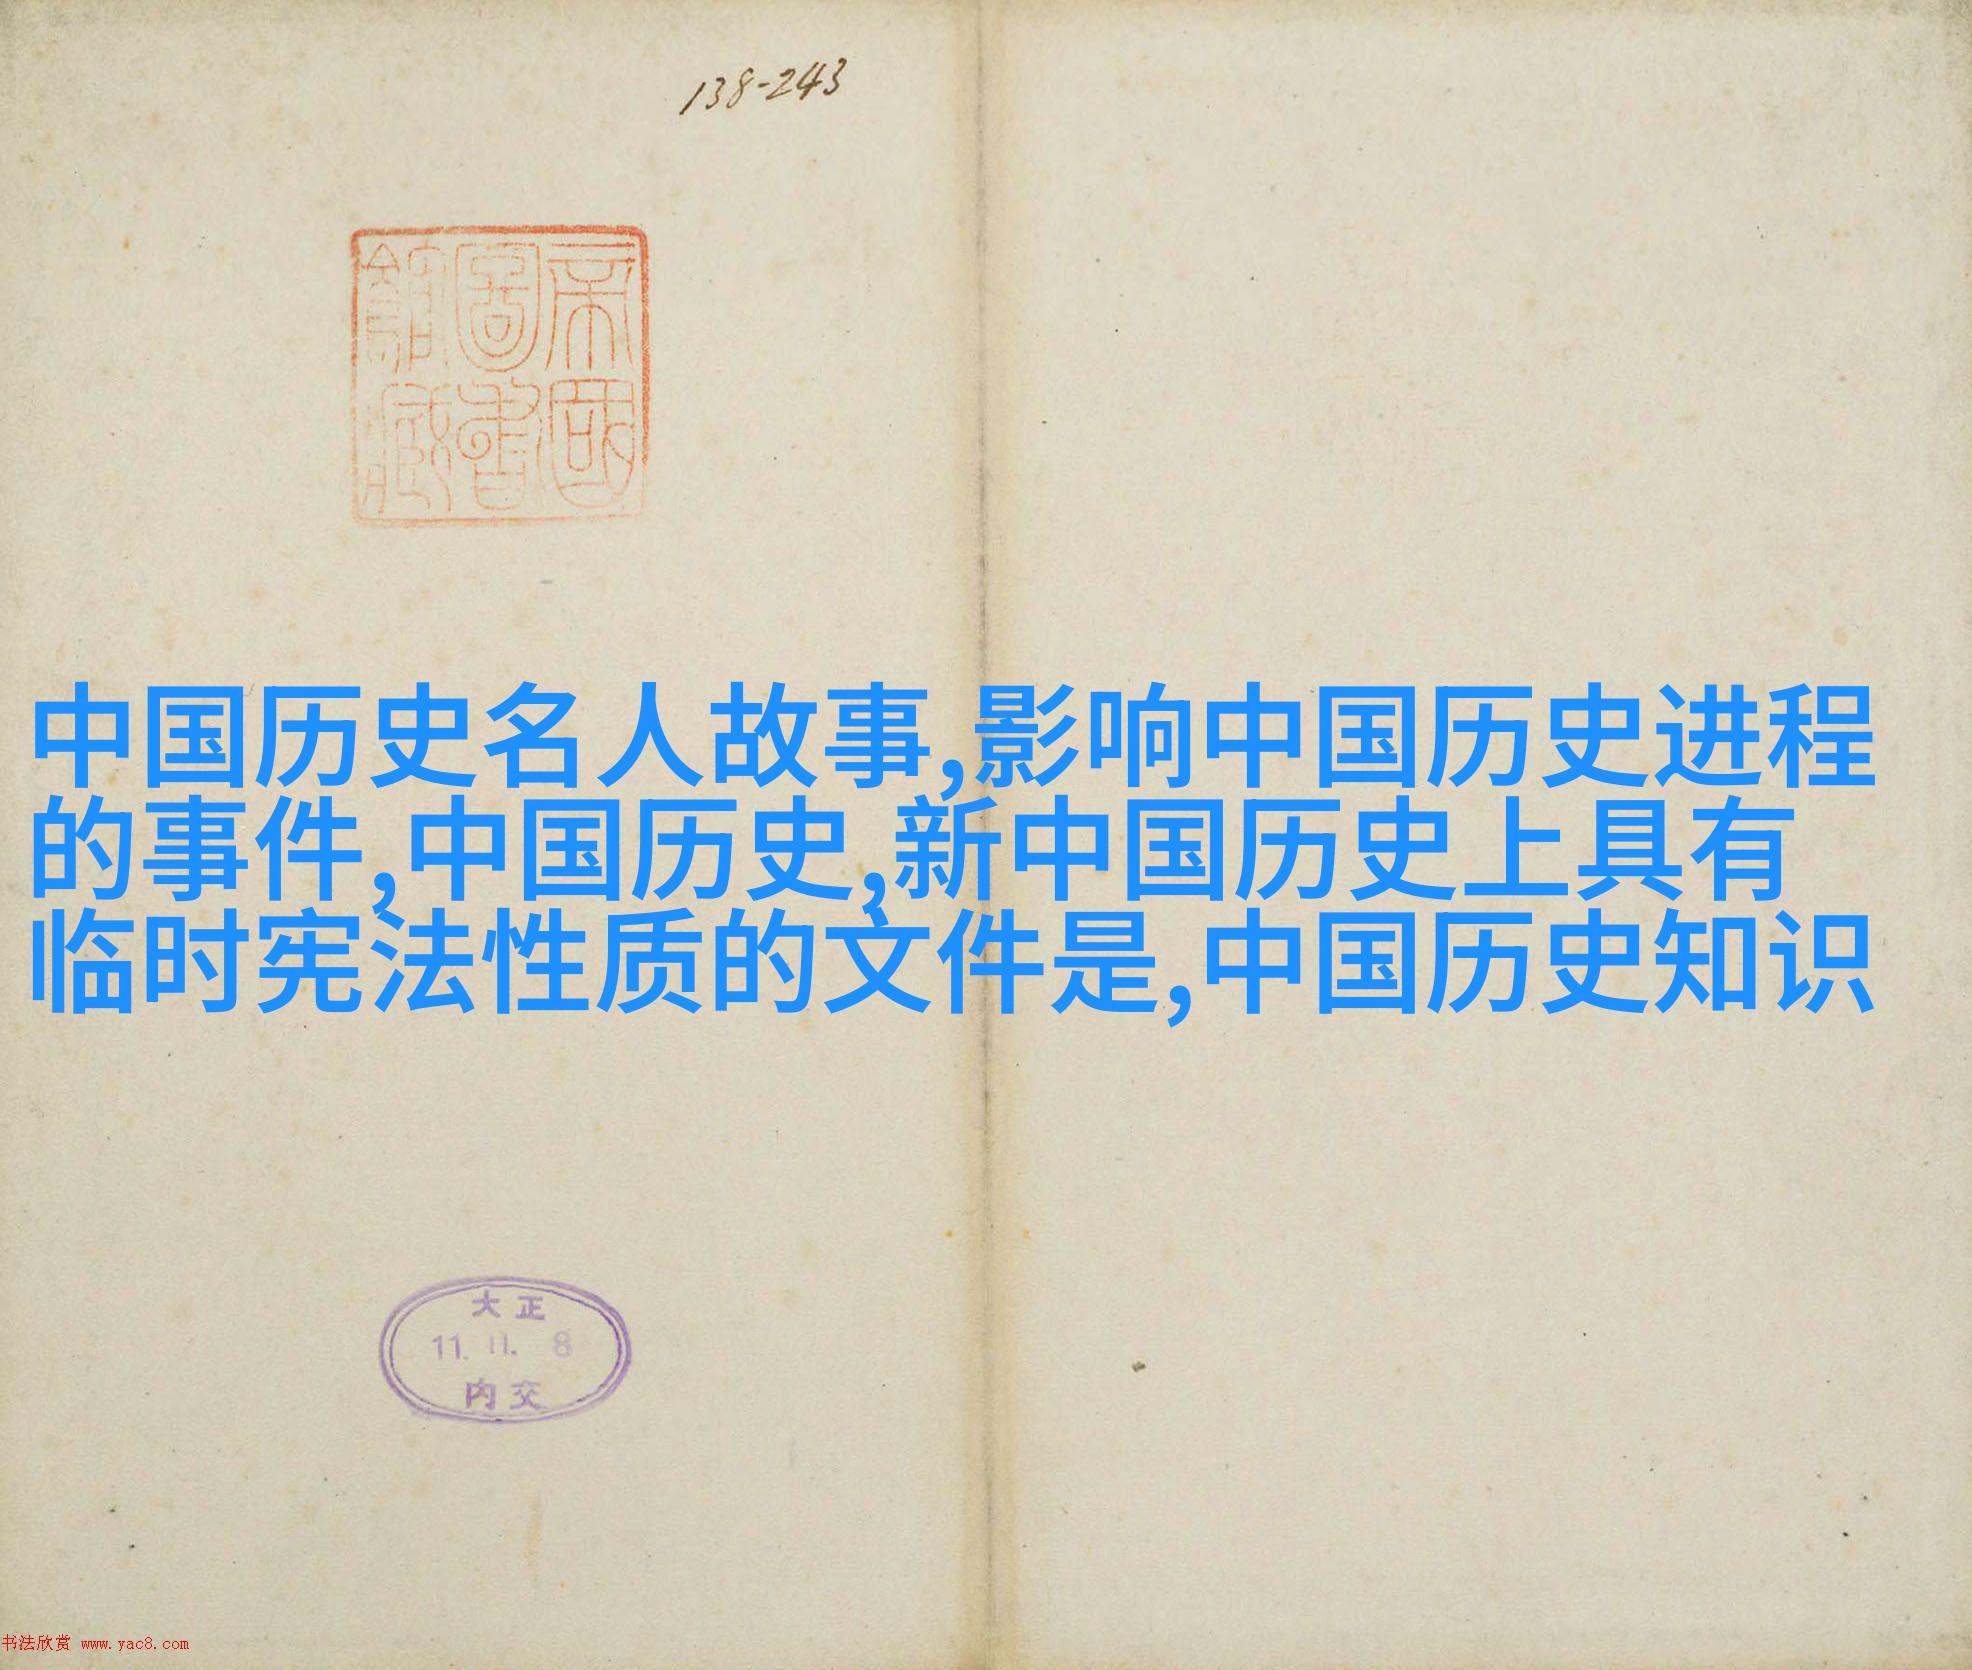 138-243
帝國
圖書
館藏
中国历史名人故事,影响中国历史进程
的事件,中国历史,新中国历史上具有
临时宪法性质的文件是,中国历史知识
大正
11.11.8
内交
书法欣赏 www.yac8.com